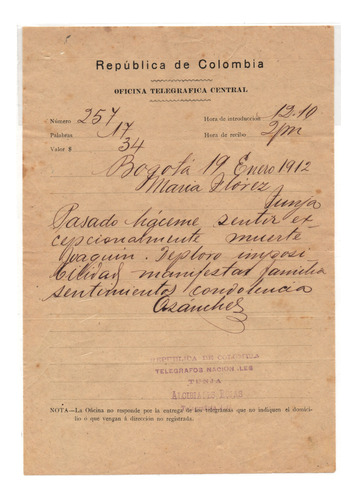 República de Colombia
OFICINA TELEGRAFICA CENTRAL
Número 257 Hora de introducción 12.10
Palabras 17 Hora de recibo 2 pm
Valor $ 34
Bogotá 19 Enero 1912
María Flórez
Tunja
Pasado háceme sentir ex
cepcionalmente muerte
Joaquin. Deploro imposi
bilidad manifestar familia
sentimientos condolencia
Osanchez
REPUBLICA DE COLOMBIA
TELEGRAFOS NACIONALES
TUNJA
NOTA—La Oficina no responde por la entrega de los telegramas que no indiquen el domici-
lio o que vengan á dirección no registrada.